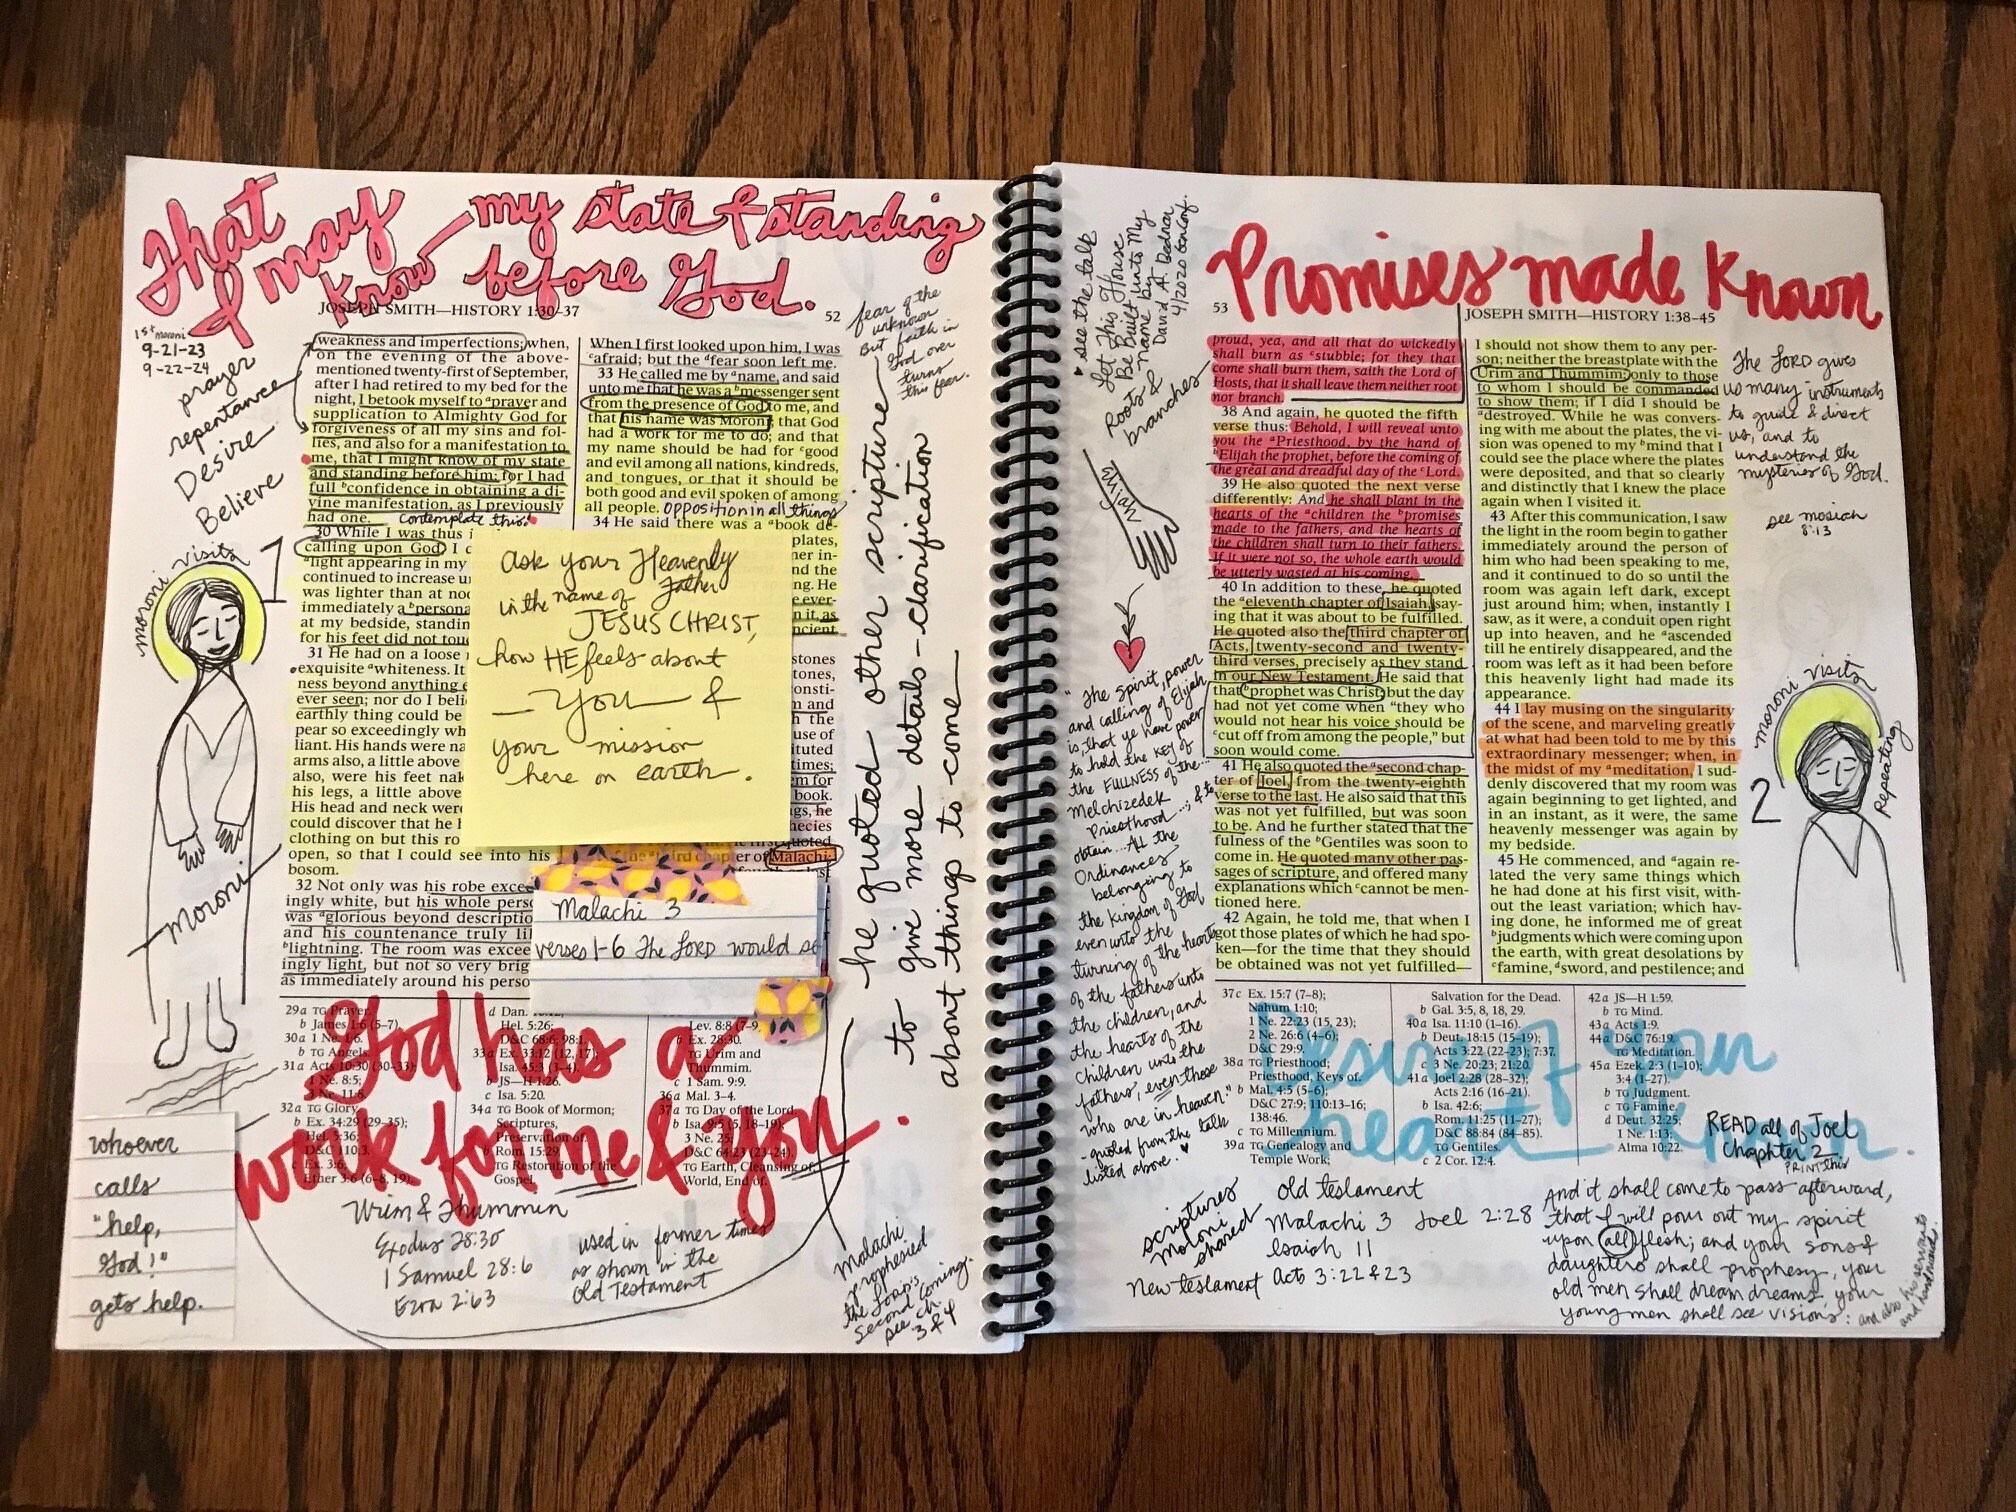 That
I may
know — my state & standing
before God.
JOSEPH SMITH—HISTORY 1:30–37
52
1st moroni
9-21-23
9-22-24
prayer
repentance
Desire
Believe
moroni visits
1
moroni
fear of the
unknown
But faith in
God over
turns
this fear.
weakness and imperfections; when,
on the evening of the above-
mentioned twenty-first of September,
after I had retired to my bed for the
night, I betook myself to aprayer and
supplication to Almighty God for
forgiveness of all my sins and fol-
lies, and also for a manifestation to
me, that I might know of my state
and standing before him; for I had
full bconfidence in obtaining a di-
vine manifestation, as I previously
had one. contemplate this!
30 While I was thus i
calling upon God, I d
alight appearing in my
continued to increase u
was lighter than at noo
immediately a bpersona
at my bedside, standin
for his feet did not touc
31 He had on a loose r
exquisite awhiteness. It
ness beyond anything e
ever seen; nor do I beli
earthly thing could be
pear so exceedingly wh
liant. His hands were na
arms also, a little above
also, were his feet nak
his legs, a little above
His head and neck were
could discover that he h
clothing on but this ro
open, so that I could see into his
bosom.
32 Not only was his robe excee
ingly white, but his whole perso
was aglorious beyond descriptio
and his countenance truly lil
blightning. The room was excee
ingly light, but not so very brig
as immediately around his perso
When I first looked upon him, I was
cafraid; but the dfear soon left me.
33 He called me by aname, and said
unto me that he was a bmessenger sent
from the presence of God to me, and
that his name was Moroni; that God
had a work for me to do; and that
my name should be had for cgood
and evil among all nations, kindreds,
and tongues, or that it should be
both good and evil spoken of among
all people. opposition in all things
34 He said there was a abook de-
plates,
ner in-
nd the
ng. He
e ever-
n it, as
ncient
stones
tones,
onsti-
m and
h the
use of
ituted
times;
em for
book.
gs, he
hecies
quoted
the athird chapter of Malachi;
ask your Heavenly
Father
in the name of
JESUS CHRIST,
how HE feels about
— YOU — &
your mission
here on earth.
Malachi 3
verses 1-6 The LORD would se
he quoted other scripture
to give more details - clarification
about things to come —
29a TG Prayer.
b James 1:6 (5–7).
30a 1 Ne. 1:6.
b TG Angels.
31a Acts 10:30 (30–33);
1 Ne. 8:5;
3 Ne. 11:8.
32a TG Glory.
b Ex. 34:29 (29–35);
Hel. 5:36;
D&C 110:3.
c Ex. 3:6;
Ether 3:6 (6–8, 19).
d Dan.
Hel. 5:26;
D&C 68:6; 98:1.
33a Ex. 33:12 (12, 17);
Isa. 45:3 (3–4).
b JS—H 1:26.
c Isa. 5:20.
34a TG Book of Mormon;
Scriptures,
Preservation of.
b Rom. 15:29.
TG Restoration of the
Gospel.
Lev. 8:8 (7–9
b Ex. 28:30.
TG Urim and
Thummim.
c 1 Sam. 9:9.
36a Mal. 3–4.
37a TG Day of the Lord.
b Isa. 9:5 (5, 18–19);
3 Ne. 25;
D&C 64:23 (23–24).
TG Earth, Cleansing of;
World, End of.
God has a
work for me & you.
whoever
calls
"help,
God!"
gets help.
Urim & Thummin
Exodus 28:30
1 Samuel 28:6
Ezra 2:63
used in former times
as shown in the
Old Testament
Malachi
prophesied
the Lord's
Second coming.
see ch.
3 & 4
♥ see the talk
Let This House
Be Built unto My
name by
David A. Bednar
4/2020 GenConf.
Roots &
branches
Elijah
"The Spirit, power
and calling of Elijah
is, that ye have power
to hold the KEY of
the FULLNESS of the...
Melchizedek
Priesthood...; & to
obtain... All the
Ordinances
belonging to
the Kingdom of God
even unto the
turning of the hearts
of the fathers unto
the children, and
the hearts of the
Children unto the
fathers, even those
who are in heaven"
- quoted from the talk
listed above. ♥
Promises made known
53
JOSEPH SMITH—HISTORY 1:38–45
proud, yea, and all that do wickedly
shall burn as cstubble; for they that
come shall burn them, saith the Lord of
Hosts, that it shall leave them neither root
nor branch.
38 And again, he quoted the fifth
verse thus: Behold, I will reveal unto
you the aPriesthood, by the hand of
bElijah the prophet, before the coming of
the great and dreadful day of the cLord.
39 He also quoted the next verse
differently: And he shall plant in the
hearts of the achildren the bpromises
made to the fathers, and the hearts of
the children shall turn to their fathers.
If it were not so, the whole earth would
be utterly wasted at his coming.
40 In addition to these, he quoted
the aeleventh chapter of Isaiah, say-
ing that it was about to be fulfilled.
He quoted also the third chapter of
Acts, twenty-second and twenty-
third verses, precisely as they stand
in our New Testament. He said that
that bprophet was Christ; but the day
had not yet come when "they who
would not hear his voice should be
ccut off from among the people," but
soon would come.
41 He also quoted the asecond chap-
ter of Joel, from the twenty-eighth
verse to the last. He also said that this
was not yet fulfilled, but was soon
to be. And he further stated that the
fulness of the bGentiles was soon to
come in. He quoted many other pas-
sages of scripture, and offered many
explanations which ccannot be men-
tioned here.
42 Again, he told me, that when I
got those plates of which he had spo-
ken—for the time that they should
be obtained was not yet fulfilled—
I should not show them to any per-
son; neither the breastplate with the
Urim and Thummim; only to those
to whom I should be commanded
to show them; if I did I should be
adestroyed. While he was convers-
ing with me about the plates, the vi-
sion was opened to my bmind that I
could see the place where the plates
were deposited, and that so clearly
and distinctly that I knew the place
again when I visited it.
43 After this communication, I saw
the light in the room begin to gather
immediately around the person of
him who had been speaking to me,
and it continued to do so until the
room was again left dark, except
just around him; when, instantly I
saw, as it were, a conduit open right
up into heaven, and he aascended
till he entirely disappeared, and the
room was left as it had been before
this heavenly light had made its
appearance.
44 I lay musing on the singularity
of the scene, and marveling greatly
at what had been told to me by this
extraordinary messenger; when, in
the midst of my ameditation, I sud-
denly discovered that my room was
again beginning to get lighted, and
in an instant, as it were, the same
heavenly messenger was again by
my bedside.
45 He commenced, and aagain re-
lated the very same things which
he had done at his first visit, with-
out the least variation; which hav-
ing done, he informed me of great
bjudgments which were coming upon
the earth, with great desolations by
cfamine, dsword, and pestilence; and
The LORD gives
us many instruments
to guide & direct
us, and to
understand the
mysteries of God.
see mosiah
8:13
moroni visits
2
Repeating
37c Ex. 15:7 (7–8);
Nahum 1:10;
1 Ne. 22:23 (15, 23);
2 Ne. 26:6 (4–6);
D&C 29:9.
38a TG Priesthood;
Priesthood, Keys of.
b Mal. 4:5 (5–6);
D&C 27:9; 110:13–16;
138:46.
c TG Millennium.
39a TG Genealogy and
Temple Work;
Salvation for the Dead.
b Gal. 3:5, 8, 18, 29.
40a Isa. 11:10 (1–16).
b Deut. 18:15 (15–19);
Acts 3:22 (22–23); 7:37.
c 3 Ne. 20:23; 21:20.
41a Joel 2:28 (28–32);
Acts 2:16 (16–21).
b Isa. 42:6;
Rom. 11:25 (11–27);
D&C 88:84 (84–85).
TG Gentiles.
c 2 Cor. 12:4.
42a JS—H 1:59.
b TG Mind.
43a Acts 1:9.
44a D&C 76:19.
TG Meditation.
45a Ezek. 2:3 (1–10);
3:4 (1–27).
b TG Judgment.
c TG Famine.
d Deut. 32:25;
1 Ne. 1:13;
Alma 10:22.
READ all of Joel
Chaphter 2
PRINT this
scriptures
Moroni
shared
Old testament
Malachi 3 Joel 2:28
Isaiah 11
New testament Acts 3:22 & 23
And it shall come to pass afterward,
that I will pour out my spirit
upon all flesh; and your sons &
daughters shall prophesy, your
old men shall dream dreams, your
young men shall see visions: and also his servants
and handmaids.